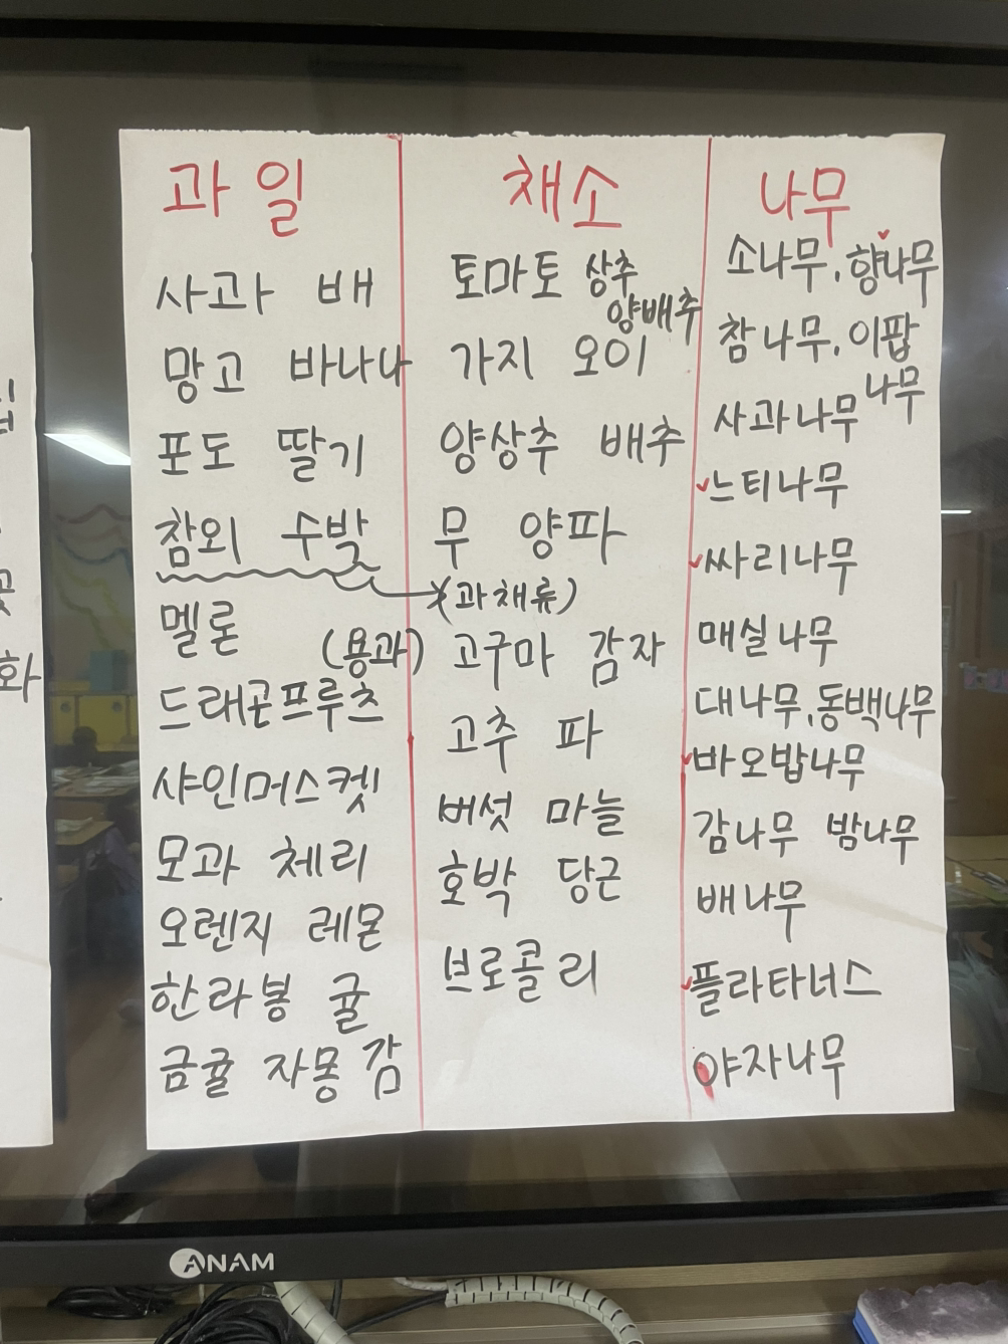 과일
사과 배
망고 바나나
포도 딸기
참외 수박
멜론
(용과)
드래곤프루츠
샤인머스켓
모과 체리
오렌지 레몬
한라봉 귤
금귤 자몽 감
채소
토마토 상추
양배추
가지 오이
양상추 배추
무 양파
(과채류)
고구마 감자
고추 파
버섯 마늘
호박 당근
브로콜리
나무
소나무, 향나무
참나무, 이팝
나무
사과나무
느티나무
싸리나무
매실나무
대나무, 동백나무
바오밥나무
감나무 밤나무
배나무
플라타너스
야자나무
화
ANAM